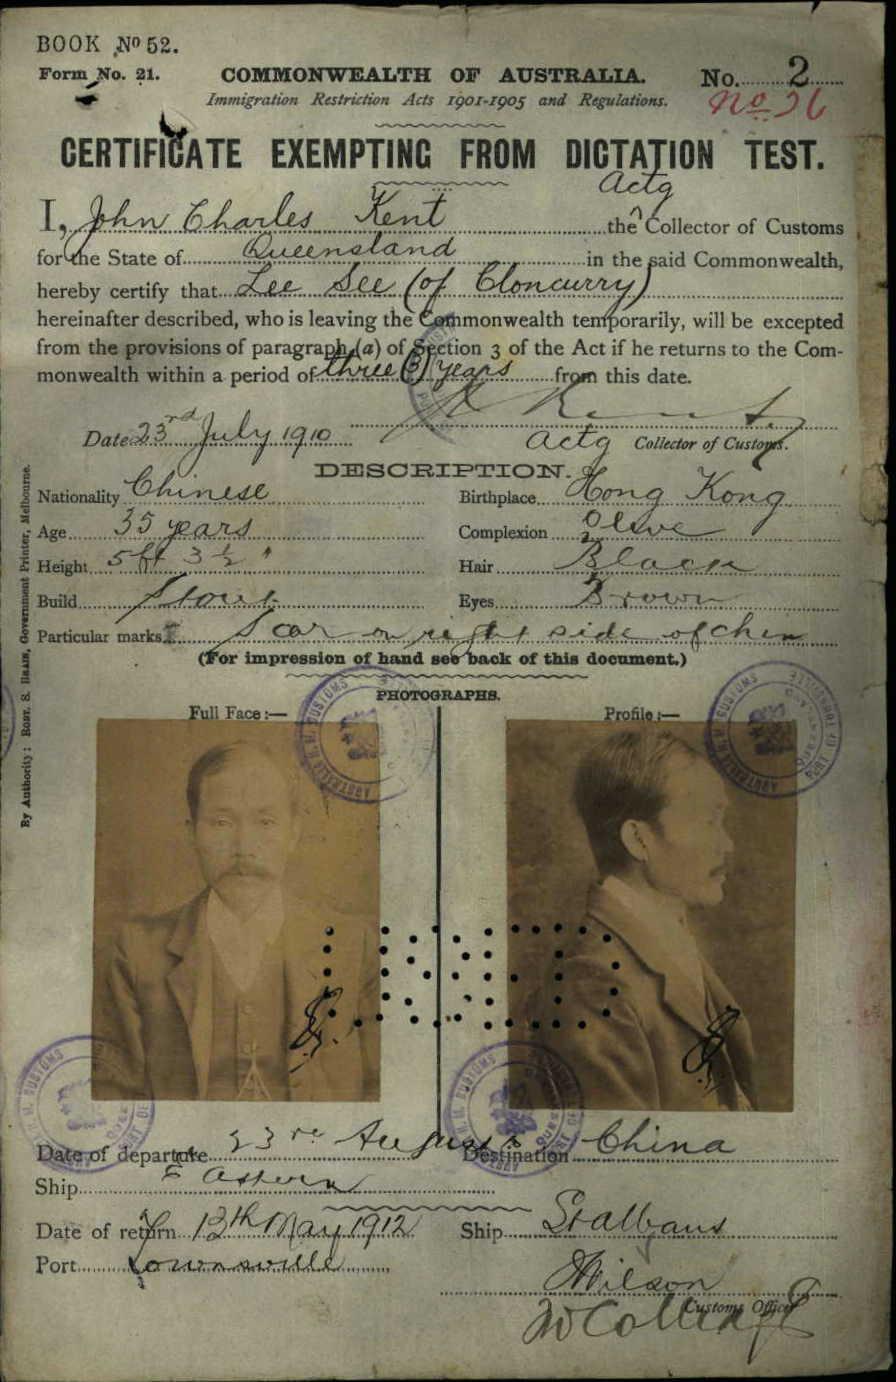 BOOK No 52.
Form No. 21.
COMMONWEALTH OF AUSTRALIA.
No. 2
Immigration Restriction Acts 1901-1905 and Regulations.
No. 26
CERTIFICATE EXEMPTING FROM DICTATION TEST.
Actg
I, John Charles Kent the Collector of Customs
for the State of Queensland in the said Commonwealth,
hereby certify that Lee See (of Cloncurry)
hereinafter described, who is leaving the Commonwealth temporarily, will be excepted
from the provisions of paragraph (a) of Section 3 of the Act if he returns to the Com-
monwealth within a period of three (3) years from this date.
Date 23rd July 1910
Actg Collector of Customs.
DESCRIPTION.
Nationality Chinese Birthplace Hong Kong
Age 35 years Complexion Olive
Height 5 ft 3 1/2 " Hair Black
Build Stout Eyes Brown
Particular marks Scar on right side of chin
(For impression of hand see back of this document.)
PHOTOGRAPHS.
Full Face :— Profile :—
Date of departure 23rd August Destination China
Ship Eastern
Date of return 13th May 1912 Ship St Albans
Port Townsville
Wilson
Customs Officer
By Authority: ROBT. S. BRAIN, Government Printer, Melbourne.